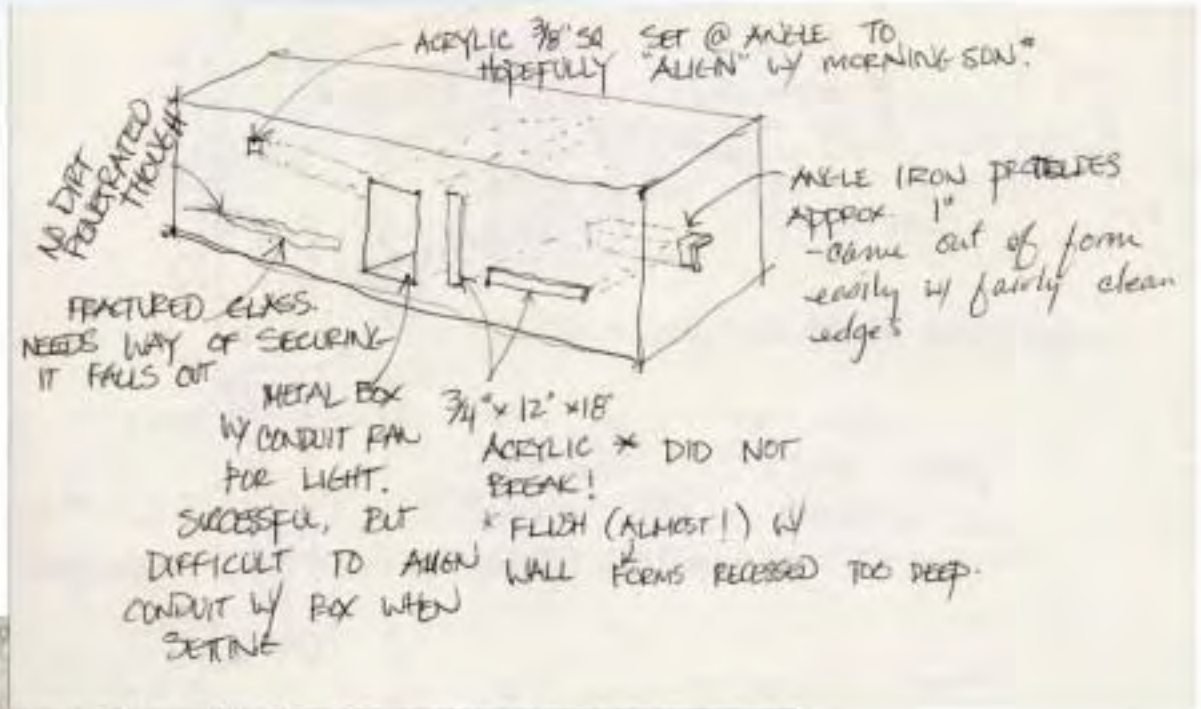 ACRYLIC 3/8" SQ SET @ ANGLE TO
HOPEFULLY "ALIGN" W/ MORNING SUN.*
NO DIRT
PENETRATED
THOUGH
ANGLE IRON PROTRUDES
APPROX. 1"
- came out of form
easily w/ fairly clean
edges
FRACTURED GLASS.
NEEDS WAY OF SECURING-
IT FALLS OUT
METAL BOX
W/ CONDUIT RAN
FOR LIGHT.
SUCCESSFUL, BUT
DIFFICULT TO ALIGN
CONDUIT W/ BOX WHEN
SETTING
3/4" x 12" x 18"
ACRYLIC * DID NOT
BREAK!
* FLUSH (ALMOST!) W/
WALL FORMS RECESSED TOO DEEP.